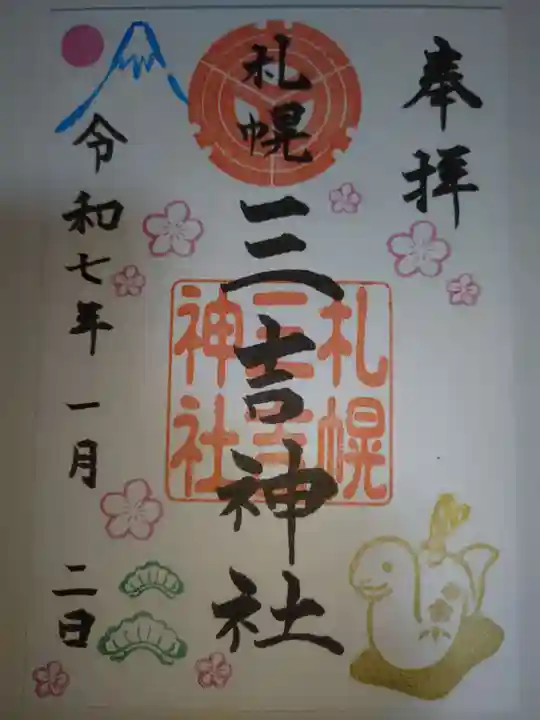 奉拝
札幌
三吉神社
札幌
三吉
神社
令和七年 一月 二日